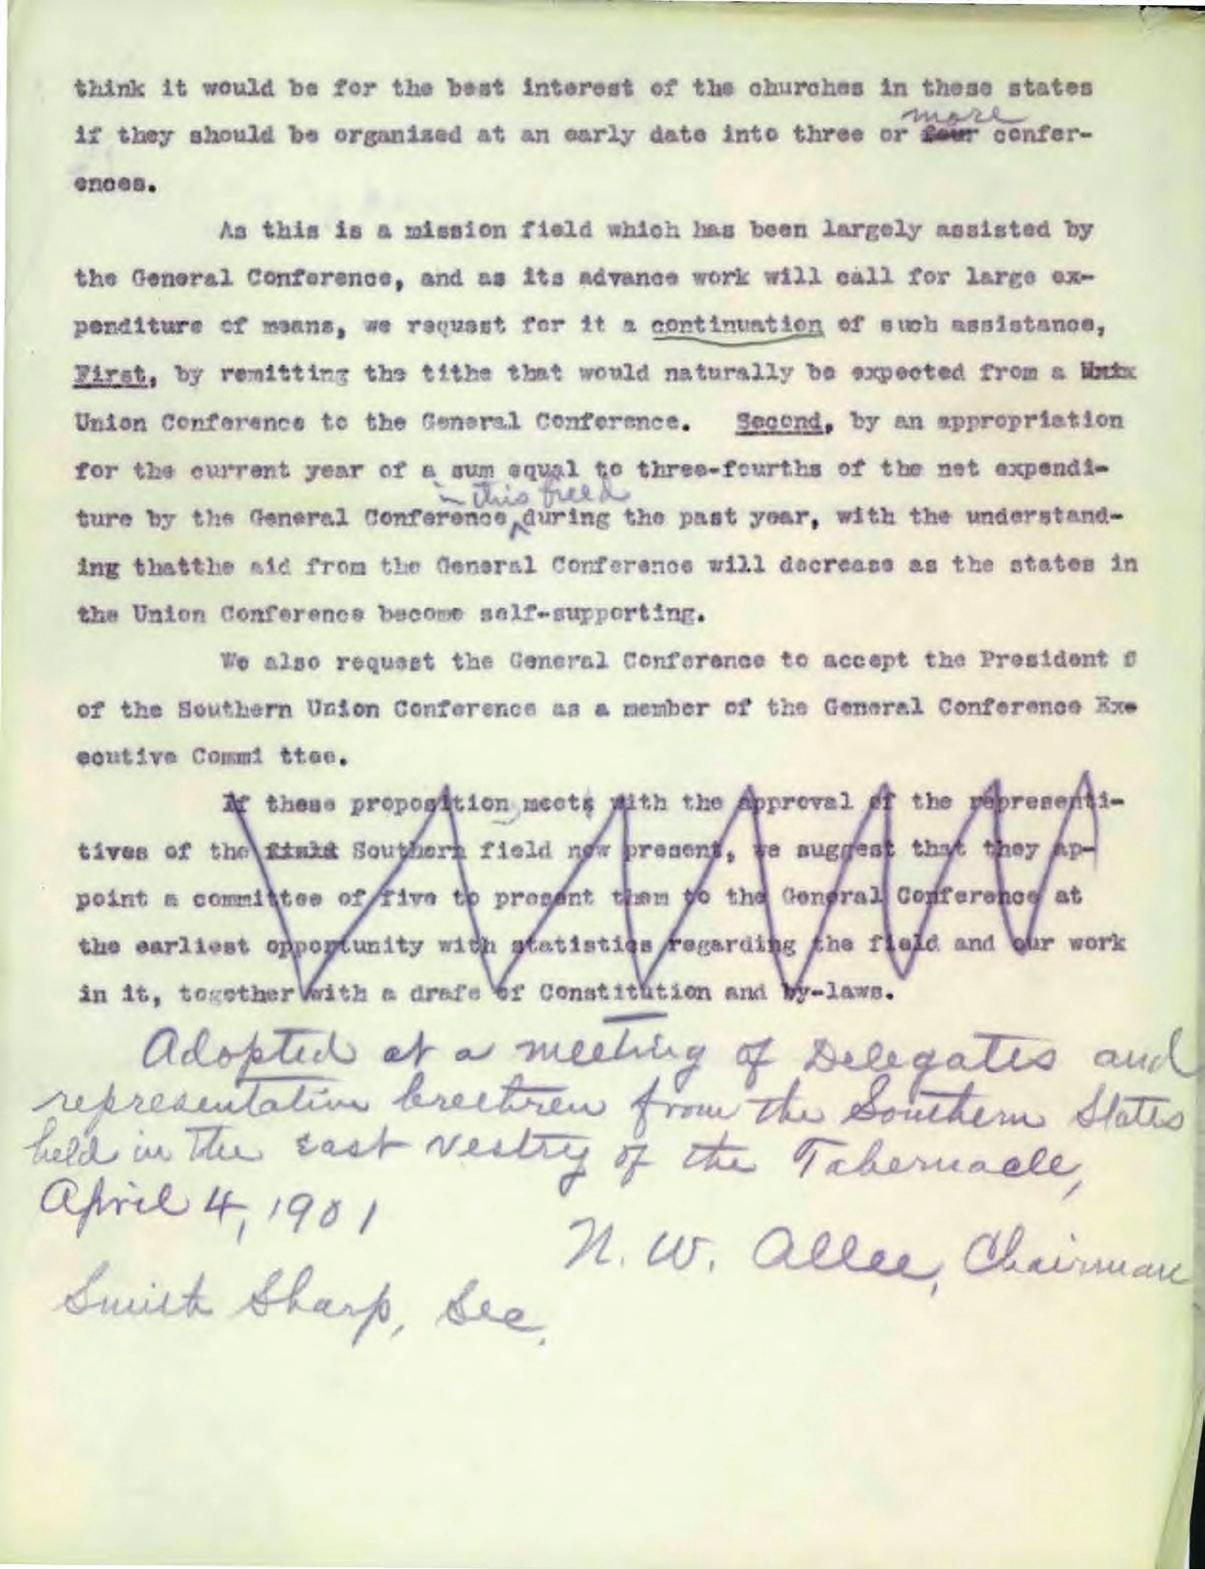 think it would be for the best interest of the churches in these states
more
if they should be organized at an early date into three or four confer-
ences.
As this is a mission field which has been largely assisted by
the General Conference, and as its advance work will call for large ex-
penditure of means, we request for it a continuation of such assistance,
First, by remitting the tithe that would naturally be expected from a
Union Conference to the General Conference. Second, by an appropriation
for the current year of a sum equal to three-fourths of the net expendi-
in this field
ture by the General Conference during the past year, with the understand-
ing thatthe aid from the General Conference will decrease as the states in
the Union Conference become self-supporting.
We also request the General Conference to accept the President
of the Southern Union Conference as a member of the General Conference Ex-
ecutive Commi ttee.
If these proposition meets with the approval of the representi-
tives of the field Southern field now present, we suggest that they ap-
point a committee of five to present them to the General Conference at
the earliest opportunity with statistics regarding the field and our work
in it, together with a drafs of Constitution and by-laws.
Adopted at a meeting of Delegates and
representative brethren from the Southern States
held in the East Vestry of the Tabernacle,
April 4, 1901
N. W. Allee, Chairman
Smith Sharp, Sec.